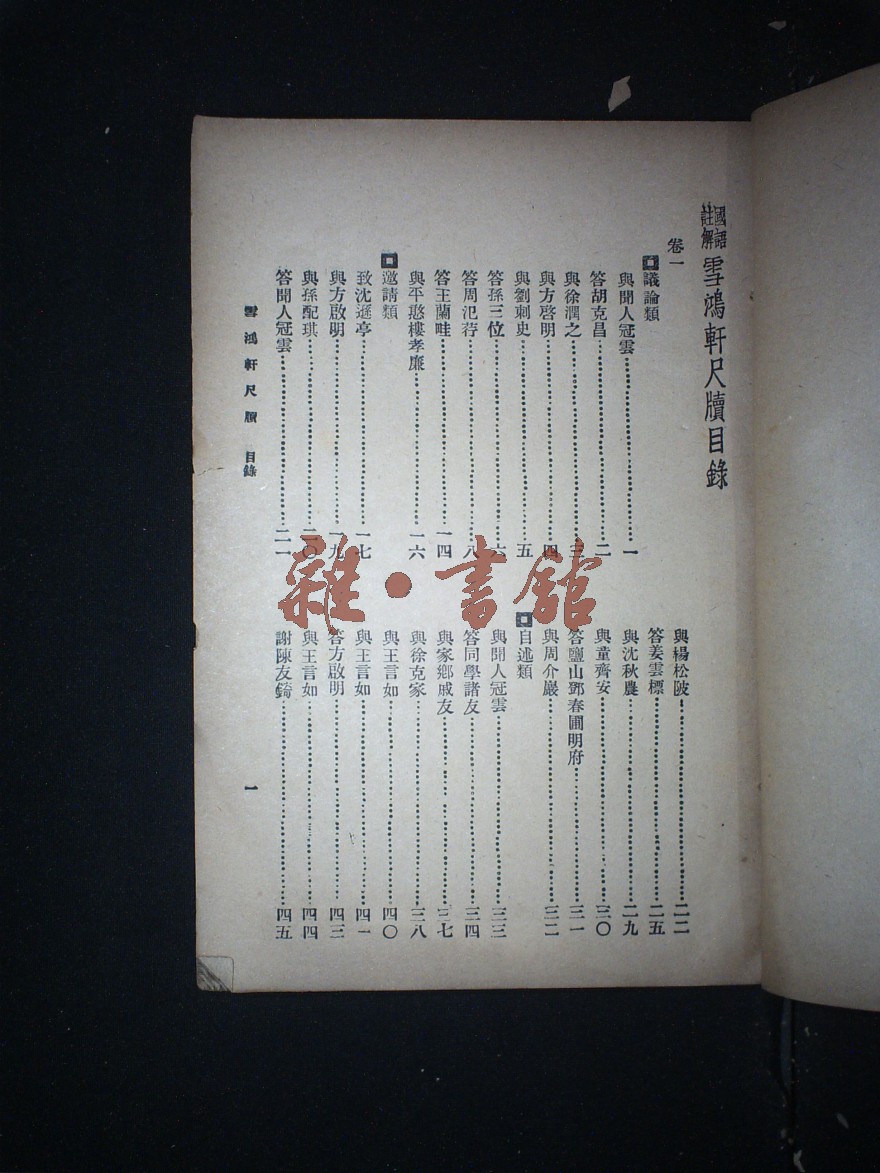 國語註解雪鴻軒尺牘目錄
卷一
議論類
與聞人冠雲……一
答胡克昌……二
與徐潤之……三
與方啓明……四
與劉刺史……五
答孫三位……六
答周氾荇……八
答王蘭畦……一四
與平憨樓孝廉……一六
邀請類
致沈遜亭……一七
與方啟明……一九
與孫配琪……二〇
答聞人冠雲……二一
與楊松陂……二二
答姜雲標……二五
與沈秋農……二九
與童齊安……三〇
答鹽山鄧春圃明府……三一
與周介巖……三二
自述類
與聞人冠雲……三三
答同學諸友……三四
與家鄉戚友……三七
與徐克家……三八
與王言如……四〇
與王言如……四一
答方啟明……四三
與王言如……四四
謝陳友錡……四五
雪鴻軒尺牘 目錄
一
雜·書館